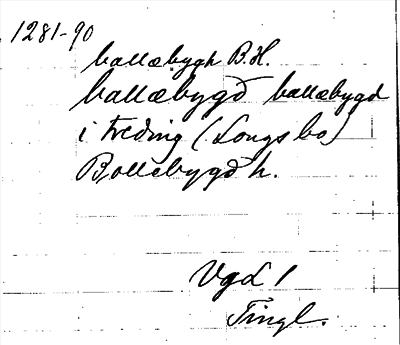 1281-90
ballæbygh B.H.
ballæbygð ballæbygd
i treding (Longs bo)
Bollebygd h.
Vgd 1
Tingl.